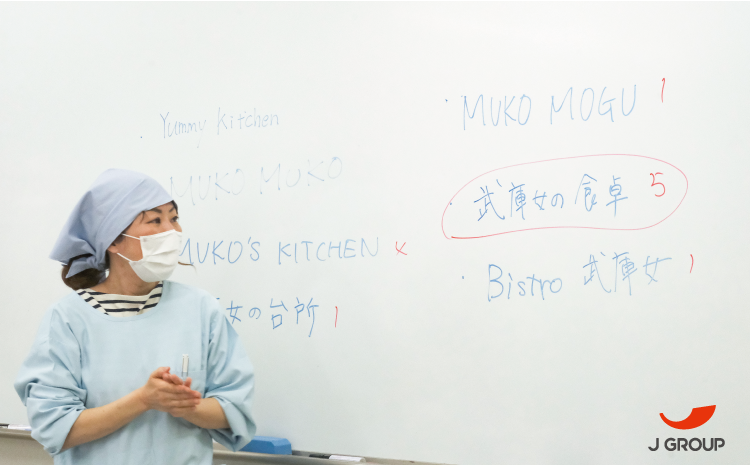 ・Yummy Kitchen
MUKO MUKO
MUKO'S KITCHEN ×
女の台所 1
・MUKO MOGU 1
・武庫女の食卓 5
・Bistro 武庫女 1
J GROUP